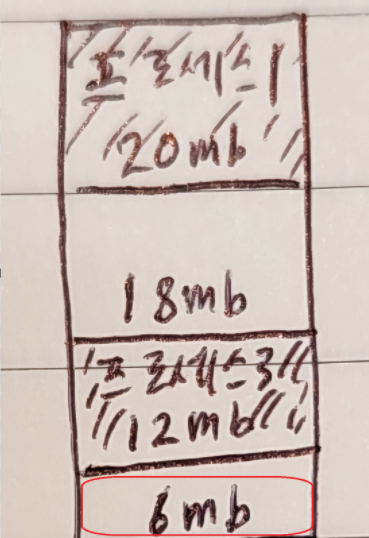 프로세스1
20mb
18mb
프로세스3
12mb
6mb